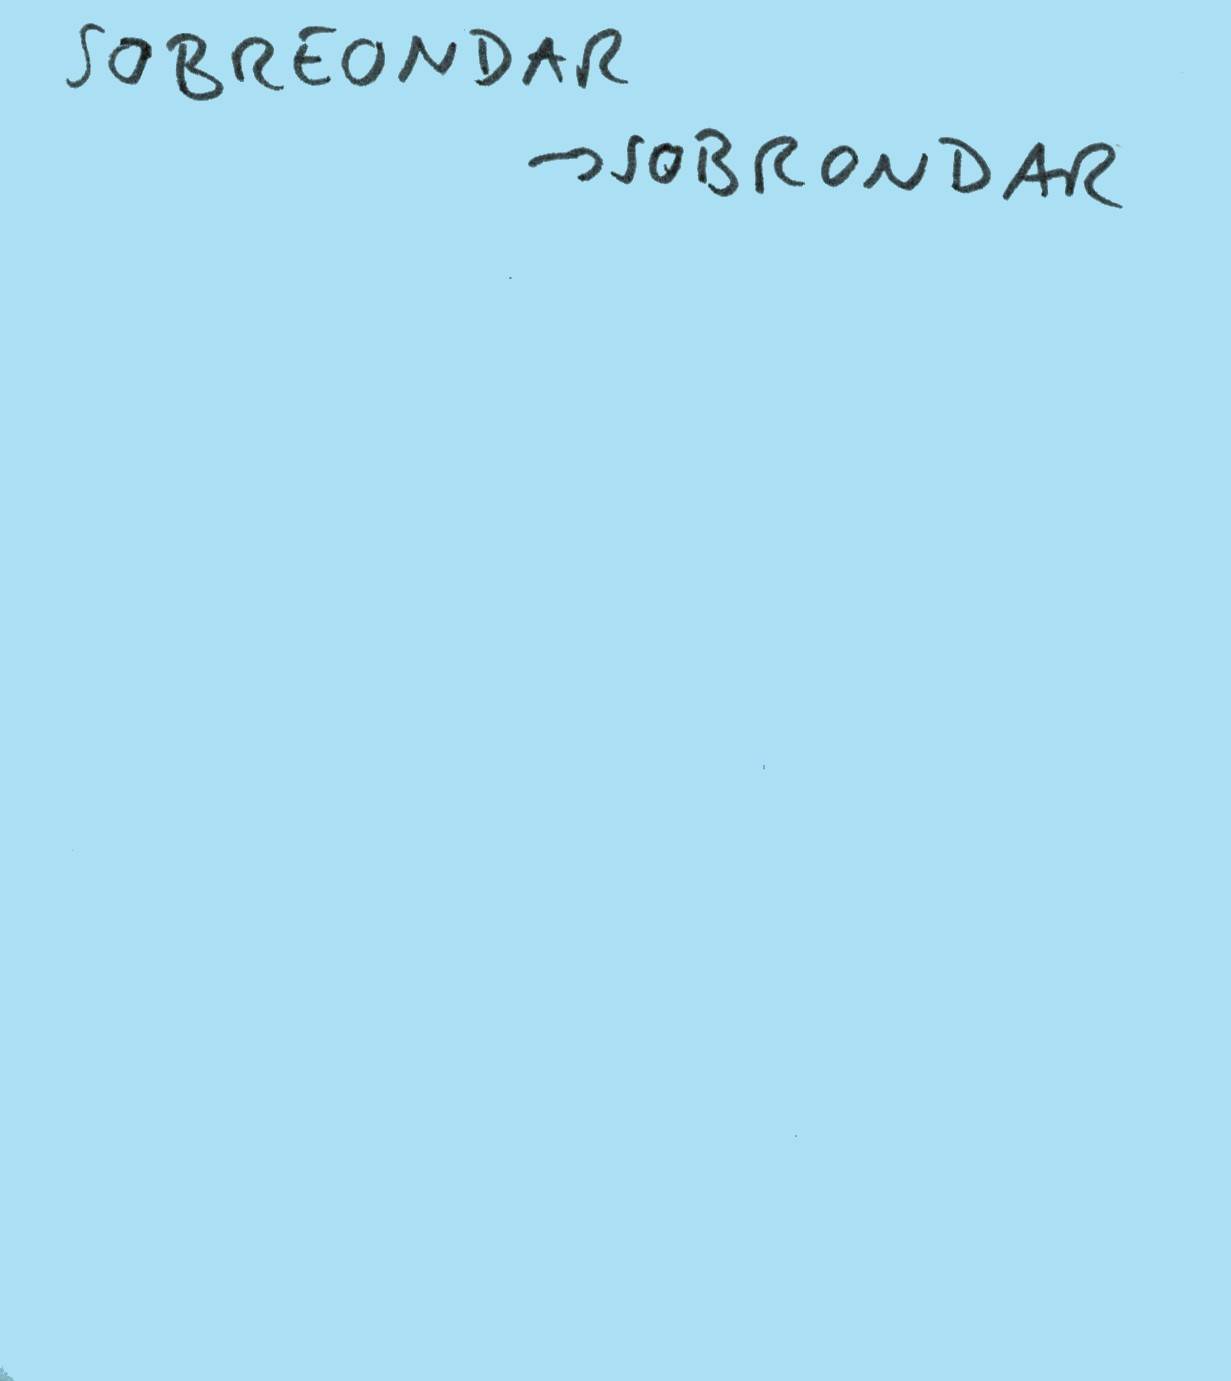 SOBREONDAR
→SOBRONDAR